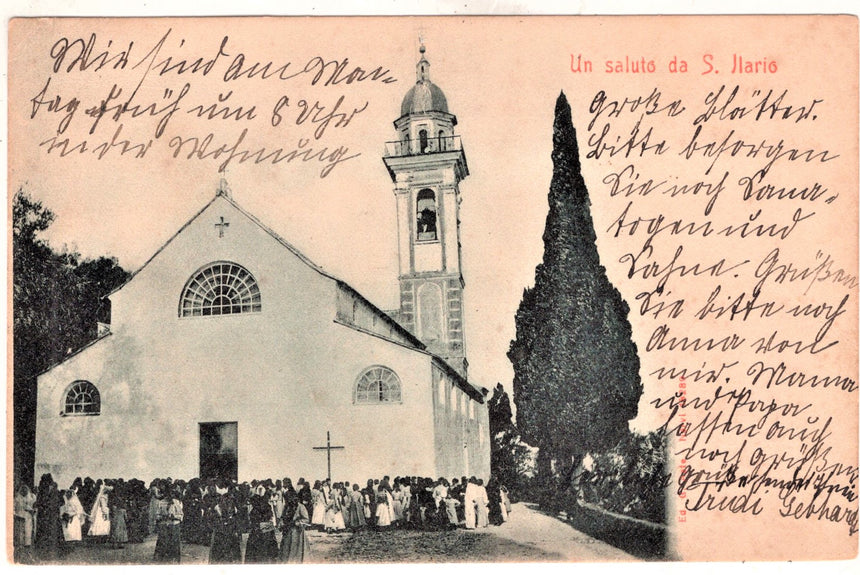 Wir sind am Mon-
tag früh um 8 Uhr
in der Wohnung
Un saluto da S. Ilario
Große Blätter.
Bitte besorgen
Sie noch Sana-
togen und
Sahne. Grüßen
Sie bitte noch
Anna von
mir. Mama
und Papa
lassen auch
noch grüßen
Grüße
Trudi Gebhardt
Ed.